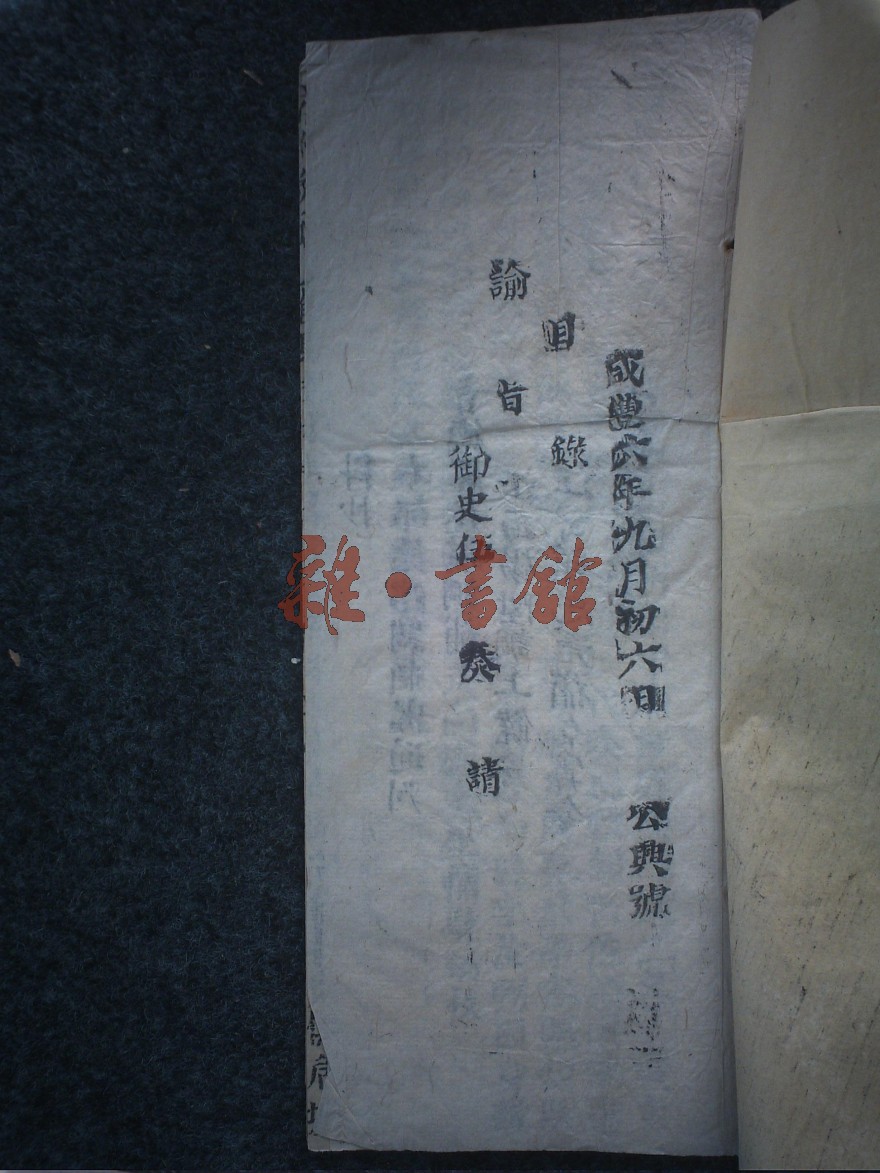 咸豐六年九月初六日 公興號
目錄
諭旨
御史 奏請
雜·書館